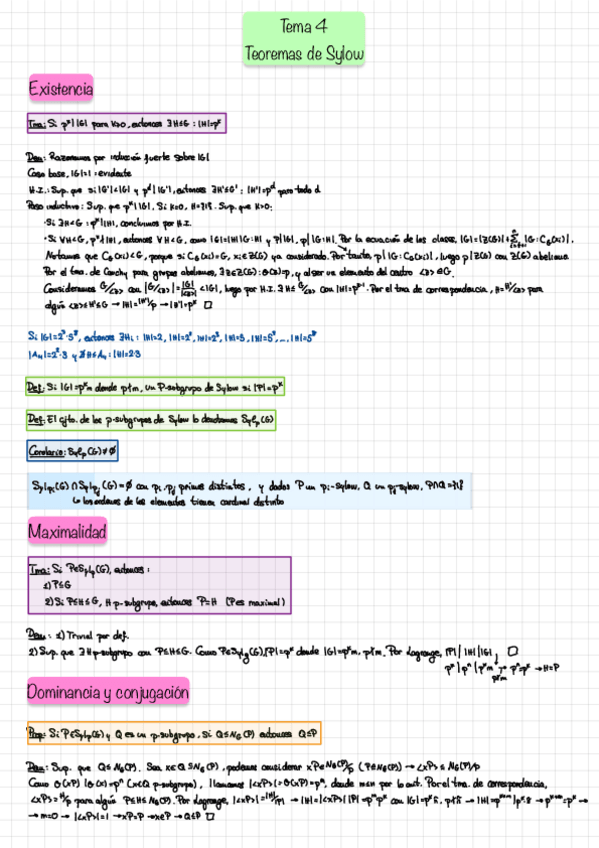 Tema 4
Teoremas de Sylow
Existencia
Tma: Si p^k | |G| para k>0, entonces ∃H≤G : |H|=p^k
Dem: Razonamos por inducción fuerte sobre |G|
Caso base, |G|=1: evidente
H.I.: Sup. que si |G'|<|G| y p^d | |G'|, entonces ∃H'≤G' : |H'|=p^d para todo d
Paso inductivo: Sup. que p^k | |G|. Si k=0, H={1}. Sup. que k>0:
·Si ∃H<G : p^k | |H|, concluimos por H.I.
·Si ∀H<G, p^k∤|H|, entonces ∀H<G, como |G|=|H||G:H| y p | |G|, p | |G:H|. Por la ecuación de las clases, |G|=|Z(G)|+Σ|G:C_G(x_i)|.
Notamos que C_G(x_i)<G, porque si C_G(x_i)=G, x_i∈Z(G) ya considerado. Por tanto p | |G:C_G(x_i)|, luego p | Z(G) con Z(G) abeliano
Por el tma. de Cauchy para grupos abelianos, ∃z∈Z(G): o(z)=p, y al ser un elemento del centro <z>⊴G.
Consideramos G/<z> con |G/<z>|=|G|/|<z>|<|G|, luego por H.I. ∃H≤G/<z> con |H|=p^k-1. Por el tma de correspondencia, H=H'/<z> para
algún <z>≤H'≤G → |H|=|H'|/p → |H'|=p^k □
|A₄|=2²·3 y ∄H≤A₄ : |H|=2·3
Def: Si |G|=p^k m donde p∤m, un p-subgrupo de Sylow si |P|=p^k
Def: El cjto. de los p-subgrupos de Sylow lo denotamos Syl_p(G)
Corolario: Syl_p(G)≠∅
Syl_pi(G)∩Syl_pj(G)=∅ con p_i,p_j primos distintos, y dados P un p_i-sylow, Q un p_j-sylow, P∩Q={1}
↳ los órdenes de los elementos tienen cardinal distinto
Maximalidad
Tma: Si P∈Syl_p(G), entonces:
1) P≤G
2) Si P≤H≤G, H p-subgrupo, entonces P=H (P es maximal)
Dem: 1) Trivial por def.
2) Sup. que ∃H p-subgrupo con P≤H≤G. Como P∈Syl_p(G), |P|=p^k donde |G|=p^k m, p∤m. Por Lagrange, |P| | |H| | |G| □
p^k | p^n | p^k m → p^n=p^k → H=P
p∤m
Dominancia y conjugación
Prop: Si P∈Syl_p(G) y Q es un p-subgrupo, si Q≤N_G(P) entonces Q≤P
Dem: Sup. que Q≤N_G(P). Sea x∈Q≤N_G(P), podemos considerar xP∈N_G(P)/P (P⊴N_G(P)) → <xP>≤N_G(P)/P
Por el tma. de correspondencia,
<xP>=H/P para algún P≤H≤N_G(P). Por Lagrange, |<xP>|=|H|/|P| → |H|=|<xP>||P|=p^m p^k
→ m=0 → |<xP>|=1 → xP=P → x∈P → Q≤P □